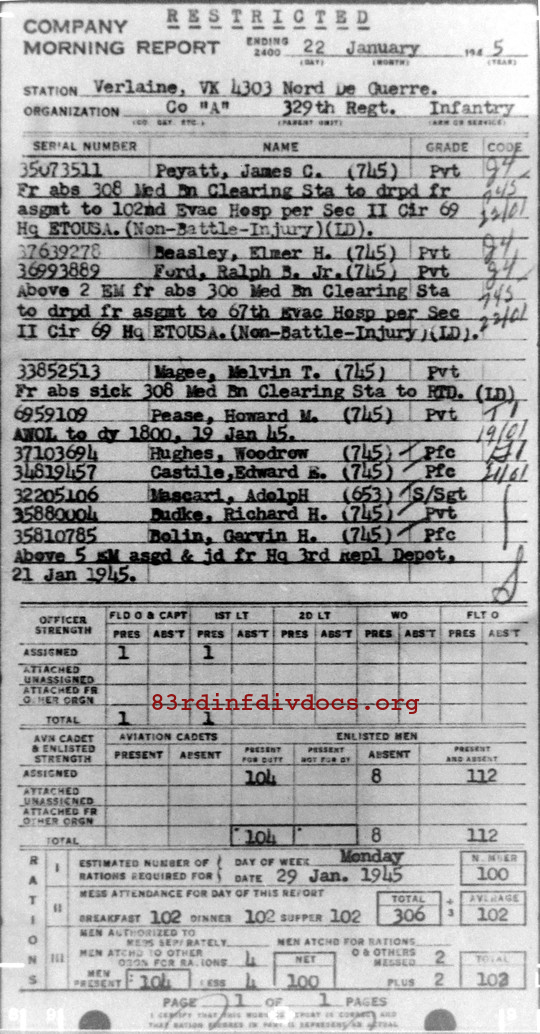 RESTRICTED
COMPANY
MORNING REPORT ENDING 2400 22 January 1945
(DAY) (MONTH) (YEAR)
STATION Verlaine, VK 4303 Nord De Guerre.
ORGANIZATION Co "A" 329th Regt. Infantry
(CO. BAT. ETC.) (PARENT UNIT) (ARM OR SERVICE)
SERIAL NUMBER NAME GRADE CODE
35073511 Peyatt, James C. (745) Pvt
Fr abs 308 Med Bn Clearing Sta to drpd fr
asgmt to 102nd Evac Hosp per Sec II Cir 69 22/01
Hq ETOUSA.(Non-Battle-Injury)(LD).
37639278 Beasley, Elmer H. (745) Pvt
36993889 Ford, Ralph B. Jr.(745) Pvt
Above 2 EM fr abs 308 Med Bn Clearing Sta
to drpd fr asgmt to 67th Evac Hosp per Sec 22/01
II Cir 69 Hq ETOUSA.(Non-Battle-Injury)(LD).
33852513 Magee, Melvin T. (745) Pvt
Fr abs sick 308 Med Bn Clearing Sta to RTD. (LD)
6959109 Pease, Howard M. (745) Pvt
AWOL to dy 1800, 19 Jan 45. 19/01
37103694 Hughes, Woodrow (745) Pfc
34819457 Castile,Edward E. (745) Pfc 21/01
32205106 Mascari, AdolpH (653) S/Sgt
35880004 Budke, Richard H. (745) Pvt
35810785 Bolin, Garvin H. (745) Pfc
Above 5 EM asgd & jd fr Hq 3rd Repl Depot,
21 Jan 1945.
OFFICER STRENGTH FLD O & CAPT 1ST LT 2D LT WO FLT O
PRES ABS'T PRES ABS'T PRES ABS'T PRES ABS'T PRES ABS'T
ASSIGNED 1 1
ATTACHED UNASSIGNED
ATTACHED FR OTHER ORGN
83rdinfdivdocs.org
TOTAL 1 1
AVN CADET & ENLISTED STRENGTH AVIATION CADETS ENLISTED MEN
PRESENT ABSENT PRESENT FOR DUTY PRESENT NOT FOR DY ABSENT PRESENT AND ABSENT
ASSIGNED 104 8 112
ATTACHED UNASSIGNED
ATTACHED FR OTHER ORGN
TOTAL 104 8 112
RATIONS
I ESTIMATED NUMBER OF RATIONS REQUIRED FOR DAY OF WEEK Monday NUMBER
DATE 29 Jan. 1945 100
II MESS ATTENDANCE FOR DAY OF THIS REPORT TOTAL ÷ AVERAGE
BREAKFAST 102 DINNER 102 SUPPER 102 306 3 102
III MEN AUTHORIZED TO MESS SEPARATELY MEN ATCHD FOR RATIONS
MEN ATCHD TO OTHER ORGN FOR RATIONS 4 NET O & OTHERS MESSED 2 TOTAL
MEN PRESENT 104 LESS 4 100 PLUS 2 102
PAGE 1 OF 1 PAGES
I CERTIFY THAT THIS MORN REPORT IS CORRECT AND